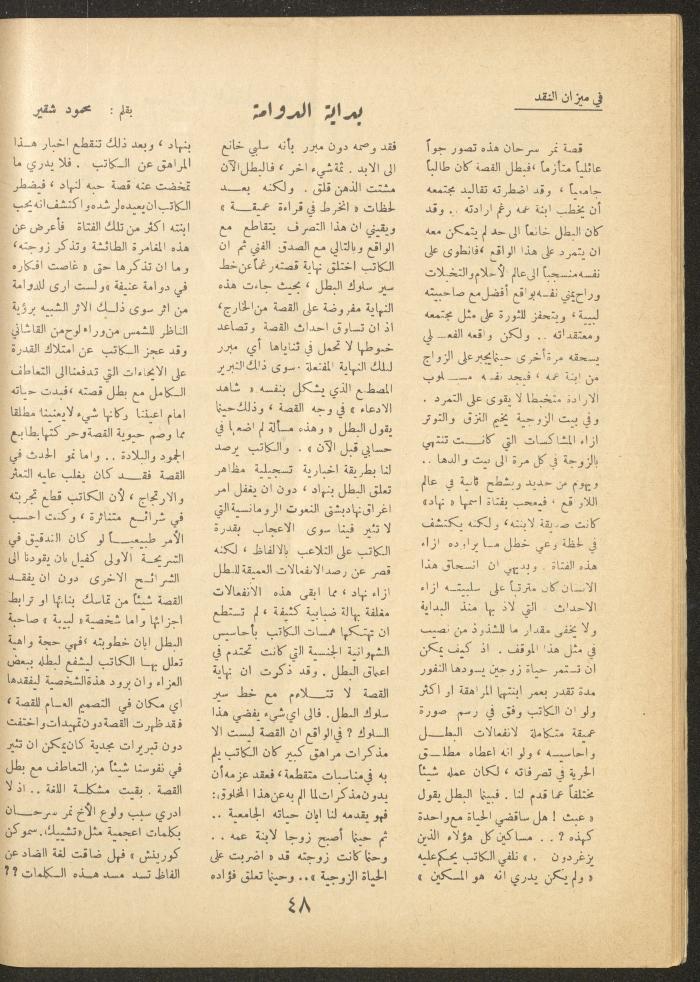 في ميزان النقد
بداية الدوامة
بقلم : محمود شقير
قصة نمر سرحان هذه تصور جواً
عائلياً متأزماً ، فبطل القصة كان طالباً
جامعياً ، وقد اضطرته تقاليد مجتمعه
أن يخطب ابنة عمه رغم ارادته .. وقد
كان البطل خانعاً الى حد لم يتمكن معه
ان يتمرد على هذا الواقع ، فانطوى على
نفسه منسحباً الى عالم الأحلام والتخيلات
وراح يمني نفسه بواقع أفضل مع صاحبيته
لبيبة ، ويتحفز للثورة على مثل مجتمعه
ومعتقداته .. ولكن واقعه الفعلي
يسحقه مرة أخرى حينما يجبر على الزواج
من ابنة عمه ، فيجد نفسه مسلوب
الارادة متخبطا لا يقوى على التمرد .
وفي بيت الزوجية يخيم النزق والتوتر
ازاء المشاكسات التي كانت تنتهي
بالزوجة في كل مرة الى بيت والدها ..
ويهوم من جديد ويشطح ثانية في عالم
اللاواقع ، فيعجب بفتاة اسمها « نهاد »
كانت صديقة لابنته ، ولكنه يكتشف
في لحظة وعي خطل ما يراوده ازاء
هذه الفتاة . وبديهي ان انسحاق هذا
الانسان كان مترتباً على سلبيته ازاء
الاحداث . التي لاذ بها منذ البداية
ولا يخفى مقدار ما للشذوذ من نصيب
في مثل هذا الموقف . اذ كيف يمكن
ان تستمر حياة زوجين يسودها النفور
مدة تقدر بعمر ابنتها المراهقة او اكثر
ولو ان الكاتب وفق في رسم صورة
عميقة متكاملة لانفعالات البطل
واحاسيسه ، ولو انه اعطاه مطلق
الحرية في تصرفاته ، لكان عمله شيئاً
مختلفاً عما قدم لنا . فبينما البطل يقول
« عبث ! هل ساقضي الحياة مع واحدة
كهذه ? .. مساكين كل هؤلاء الذين
يزغردون . » نلفي الكاتب يحكم عليه
« ولم يكن يدري انه هو المسكين »
فقد وصمه دون مبرر بأنه سلبي خانع
الى الابد . ثمة شيء اخر ، فالبطل الآن
مشتت الذهن قلق . ولكنه بعد
لحظات « انخرط في قراءة عميقة »
ويقيني ان هذا التصرف يتقاطع مع
الواقع وبالتالي مع الصدق الفني ثم ان
الكاتب اختلق نهاية قصته رغماً عن خط
سير سلوك البطل ، بحيث جاءت هذه
النهاية مفروضة على القصة من الخارج ،
اذ ان تساوق احداث القصة وتصاعد
خيوطها لا تحمل في ثناياها أي مبرر
لتلك النهاية المفتعلة . سوى ذاك التبرير
المصطنع الذي يشكل بنفسه « شاهد
الادعاء » في وجه القصة ، وذلك حينما
يقول البطل « وهذه مسألة لم اضعها في
حسابي قبل الآن » . والكاتب يرصد
لنا بطريقة اخبارية تسجيلية مظاهر
تعلق البطل بنهاد ، دون ان يغفل امر
اغراق نهاد بشتى النعوت الرومانسية التي
لا تثير فينا سوى الاعجاب بقدرة
الكاتب على التلاعب بالالفاظ ، لكنه
قصر عن رصد الانفعالات العميقة للبطل
ازاء نهاد ، مما ابقى هذه الانفعالات
مغلفة بهالة ضبابية كثيفة ، لم تستطع
ان تهتكها همسات الكاتب بأحاسيس
الشهوانية الجنسية التي كانت تحتدم في
اعماق البطل . وقد ذكرت ان نهاية
القصة لا تتلاءم مع خط سير
سلوك البطل . فالى اي شيء يفضي هذا
السلوك ? في الواقع ان القصة ليست الا
مذكرات مراهق كبير كان الكاتب يلم
به في مناسبات متقطعة ، فعقد عزمه أن
يدون مذكرات لما الم به عن هذا المخلوق :
فهو يقدمه لنا ابان حياته الجامعية ..
ثم حينما أصبح زوجا لابنة عمه ..
وحينما كانت زوجته قد « اضربت على
الحياة الزوجية » .. وحينما تعلق فؤاده
بنهاد ، وبعد ذلك تنقطع اخبار هذا
المراهق عن الكاتب . فلا يدري ما
تمخضت عنه قصة حبه لنهاد ، فيضطر
الكاتب ان يعيده لرشده واكتشف انه يحب
ابنته اكثر من تلك الفتاة فأعرض عن
هذه المغامرة الطائشة وتذكر زوجته ،
وما ان تذكرها حتى « غاصت افكاره
في دوامة عنيفة » ولست ارى للدوامة
من اثر سوى ذلك الاثر الشبيه برؤية
الناظر للشمس من وراء لوح من القاشاني
وقد عجز الكاتب عن امتلاك القدرة
على الايحاءات التي تدفعنا الى التعاطف
الكامل مع بطل قصته ، فبدت حياته
امام اعيننا وكانها شيء لا يعنينا مطلقا
مما وصم حيوية القصة وحركتها بطابع
الجمود والبلادة .. واما نمو الحدث في
القصة فقد كان يغلب عليه التعثر
والارتجاج ، لأن الكاتب قطع تجربته
في شرائح متناثرة ، وكنت احسب
الأمر طبيعياً لو كان التدقيق في
الشريحة الاولى كفيل بان يقودنا الى
الشرائح الاخرى دون ان يفقد
القصة شيئاً من تماسك بنائها او ترابط
اجزائها واما شخصية « لبيبة » صاحبة
البطل ابان خطوبته ، فهي حجة واهية
تعلل بها الكاتب ليشفع لبطله ببعض
العزاء وان برود هذة الشخصية ليفقدها
اي مكان في التصميم العام للقصة ،
فقد ظهرت القصة دون تمهيدات واختفت
دون تبريرات مجدية كان يمكن ان تثير
في نفوسنا شيئاً من التعاطف مع بطل
القصة . بقيت مشكلة اللغة .. اذ لا
ادري سبب ولوع الأخ نمر سرحان
بكلمات اعجمية مثل « تشييك . سموكن
كورينش » فهل ضاقت لغة الضاد عن
الفاظ تسد مسد هذه الكلمات ??
٤٨